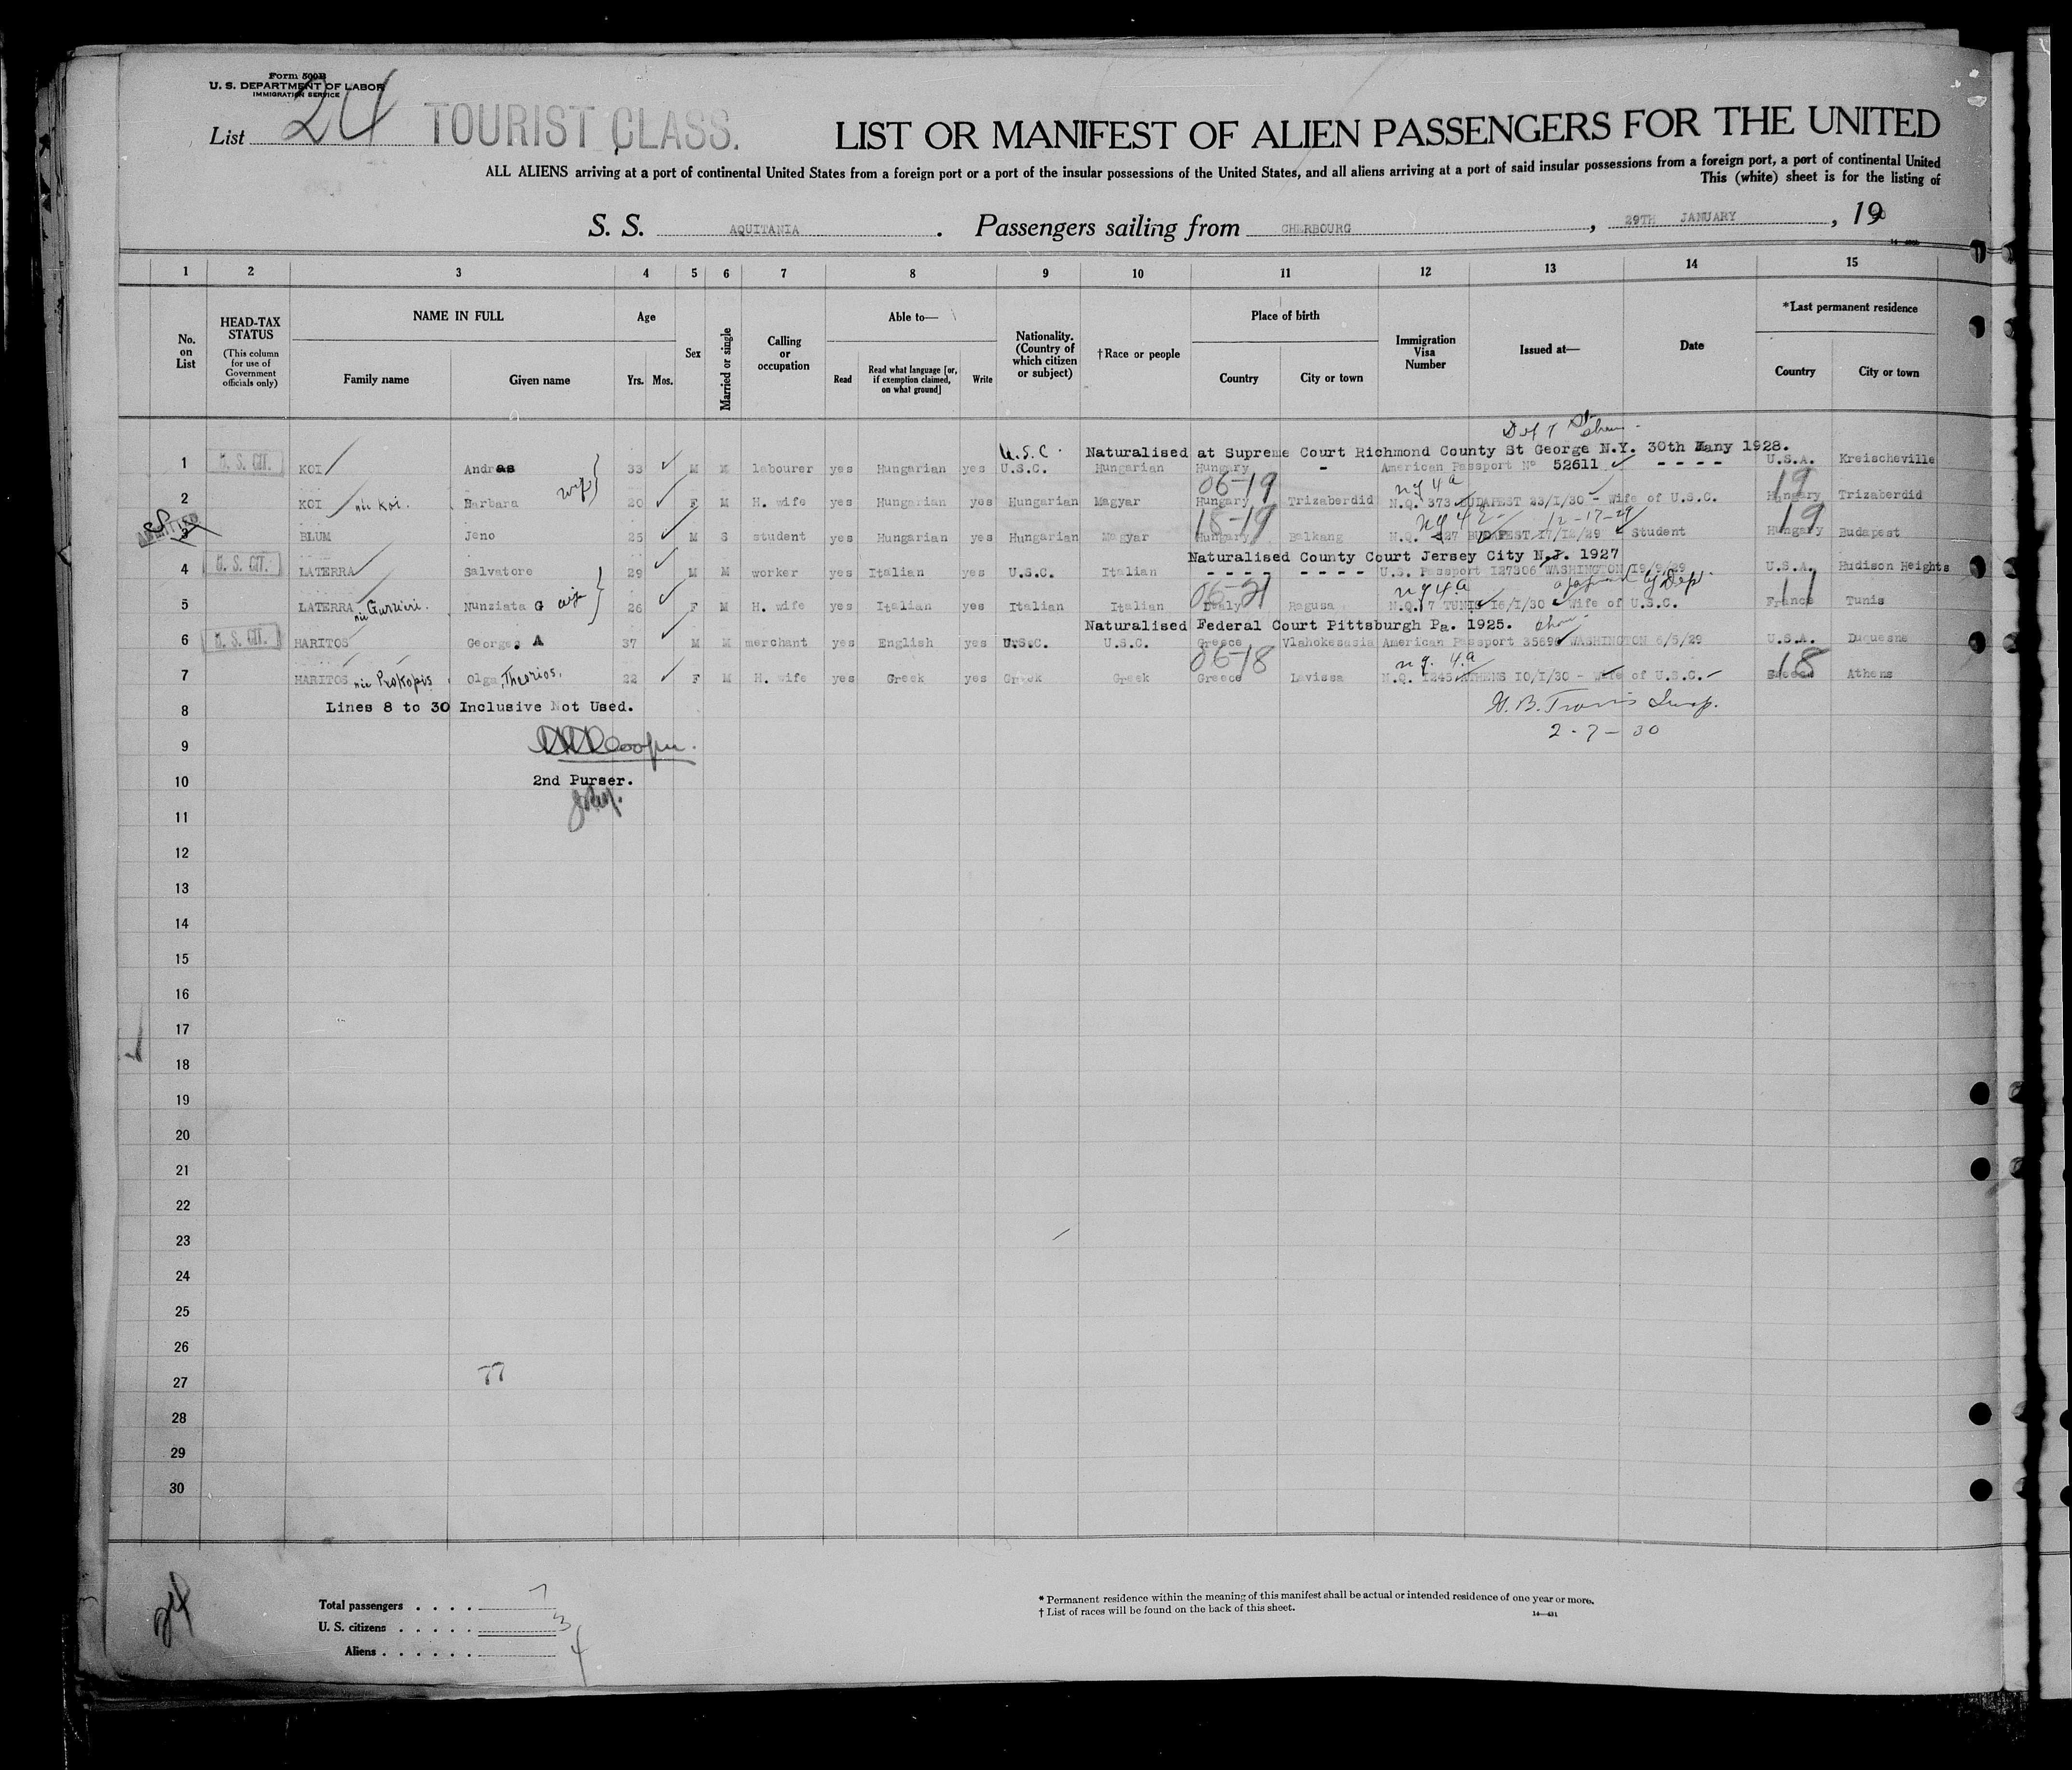 Form 500B
U. S. DEPARTMENT OF LABOR
IMMIGRATION SERVICE
List 24 TOURIST CLASS.
LIST OR MANIFEST OF ALIEN PASSENGERS FOR THE UNITED
ALL ALIENS arriving at a port of continental United States from a foreign port or a port of the insular possessions of the United States, and all aliens arriving at a port of said insular possessions from a foreign port, a port of continental United
This (white) sheet is for the listing of
S. S. AQUITANIA . Passengers sailing from CHERBOURG , 29TH JANUARY , 19
1 2 3 4 5 6 7 8 9 10 11 12 13 14 15
No. on List
HEAD-TAX STATUS (This column for use of Government officials only)
NAME IN FULL Family name Given name
Age Yrs. Mos.
Sex
Married or single
Calling or occupation
Able to— Read Read what language [or, if exemption claimed, on what ground] Write
Nationality. (Country of which citizen or subject)
†Race or people
Place of birth Country City or town
Immigration Visa Number
Issued at—
Date
*Last permanent residence Country City or town
U.S.C. Naturalised at Supreme Court Richmond County St George N.Y. 30th Many 1928.
1 U. S. CIT. KOI Andras 33 M M labourer yes Hungarian yes U.S.C. Hungarian Hungary - American Passport No 52611 - - - - U.S.A. Kreischeville
06-19 nq 4a 19
2 KOI née Koi. Barbara wife 20 F M H. wife yes Hungarian yes Hungarian Magyar Hungary Trizaberdid N.Q. 373 BUDAPEST 23/1/30 - Wife of U.S.C. Hungary Trizaberdid
15-19 12-17-29 19
3 ADMITTED BLUM Jeno 25 M S student yes Hungarian yes Hungarian Magyar Hungary Balkang N.Q. 827 BUDAPEST 17/12/29 Student Hungary Budapest
Naturalised County Court Jersey City N.J. 1927
4 U. S. CIT. LATERRA Salvatore 29 M M worker yes Italian yes U.S.C. Italian - - - - - - - - U.S. Passport 127306 WASHINGTON 19/9/29 U.S.A. Hudison Heights
06-21 nq 4a approved by Dept. 17
5 LATERRA née Gurrieri. Nunziata G wife 26 F M H. wife yes Italian yes Italian Italian Italy Ragusa N.Q. 7 TUNIS 16/1/30 Wife of U.S.C. France Tunis
Naturalised Federal Court Pittsburgh Pa. 1925.
6 U. S. CIT. HARITOS Georges A 37 M M merchant yes English yes U.S.C. U.S.C. Greece Vlahokesasia American Passport 35690 WASHINGTON 6/5/29 U.S.A. Duquesne
06-18 nq. 4.a 18
7 HARITOS née Prokopis Olga, 22 F M H. wife yes Greek yes Greek Greek Greece Lavissa N.Q. 1245 ATHENS 10/1/30 - Wife of U.S.C. Greece Athens
8 Lines 8 to 30 Inclusive Not Used. H. B. Travis Insp.
9 Cooper. 2-7-30
10 2nd Purser.
11
12
13
14
15
16
17
18
19
20
21
22
23
24
25
26
27 77
28
29
30
24
Total passengers . . . . 7
U. S. citizens . . . . . 3
Aliens . . . . . . 4
* Permanent residence within the meaning of this manifest shall be actual or intended residence of one year or more.
† List of races will be found on the back of this sheet.
14—431